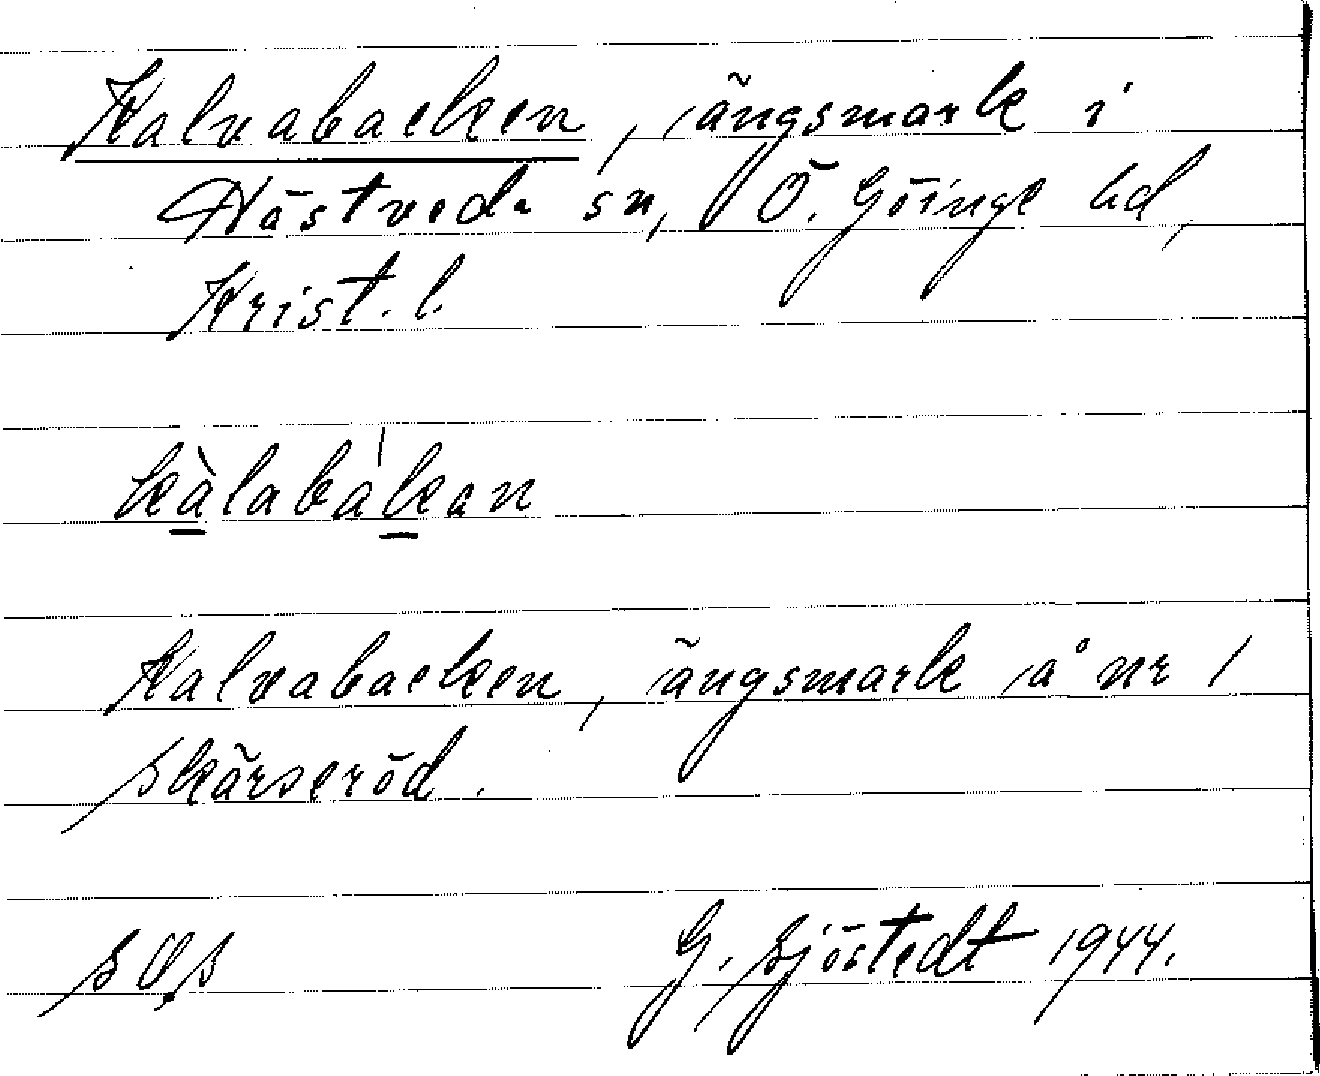 Kalvabacken, ängsmark i
Hästveda sn, V Ö. Göinge hd,
Krist. l.
kàlabàkan
Kalvabacken, ängsmark å nr 1
Skärseröd.
SOS G. Sjöstedt 1944.